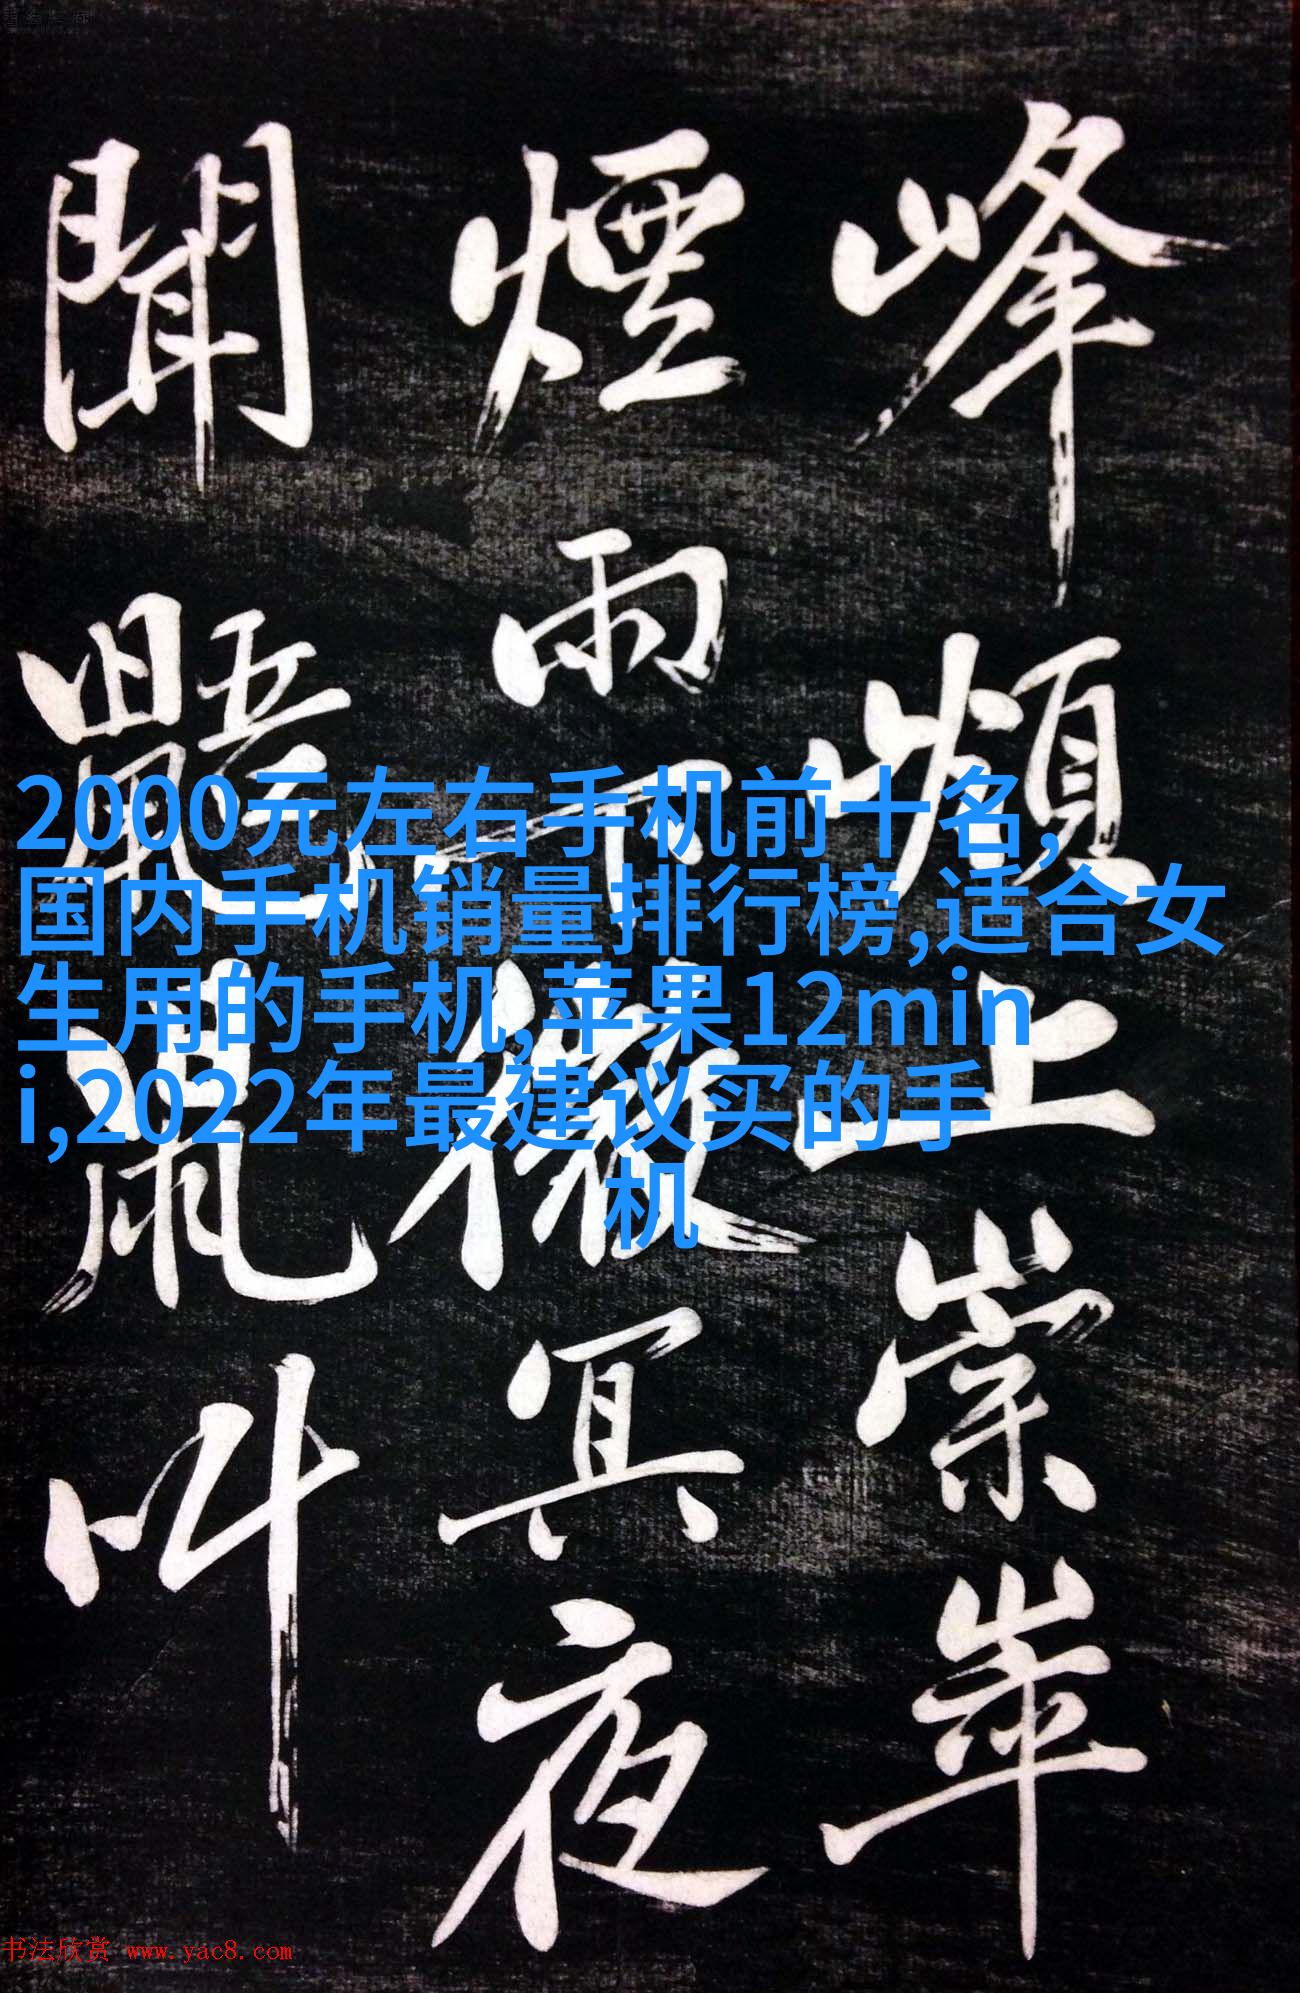 峰上崇崒
煙雨下微冥夜
聞鼯鼠叫
2000元左右手机前十名,
国内手机销量排行榜,适合女
生用的手机,苹果12min
i,2022年最建议买的手
机
书法欣赏 www.yac8.com